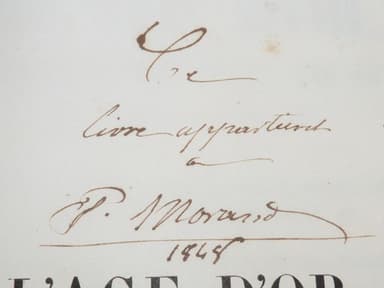 Ce
livre appartient
a
P. Morand
1848
L'AGE D'OR